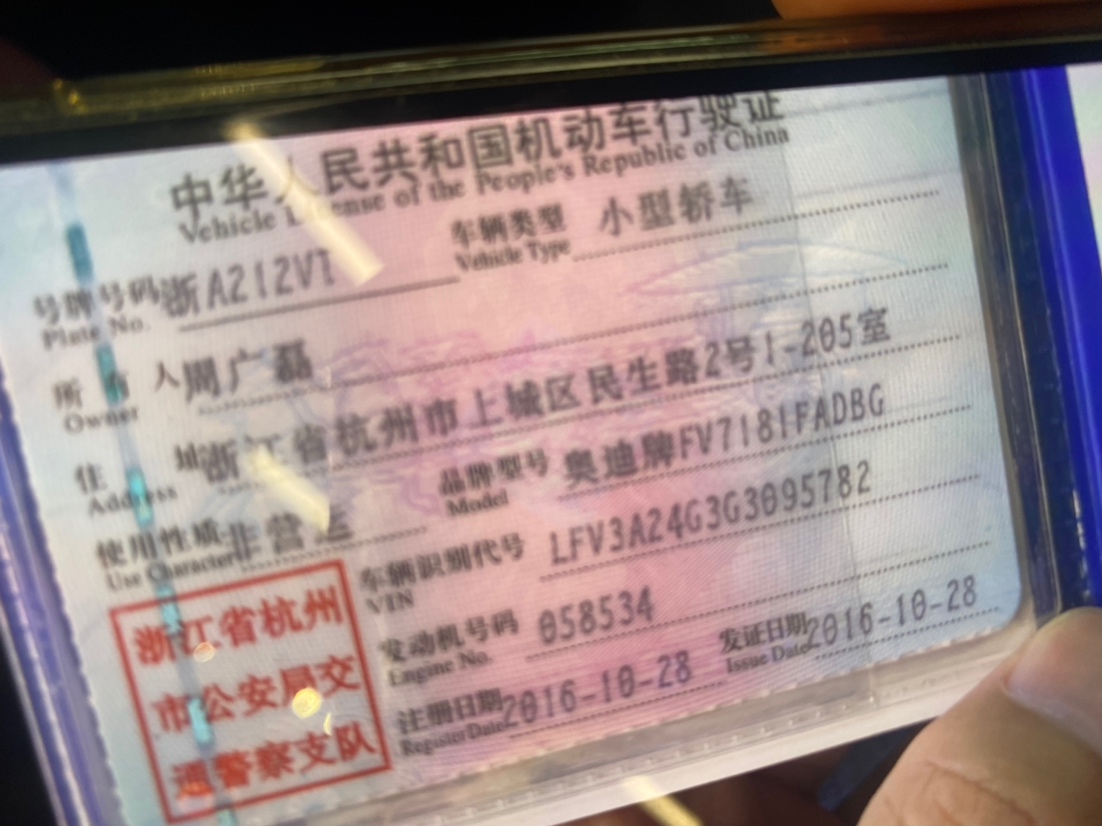 中华人民共和国机动车行驶证
Vehicle License of the People's Republic of China
号牌号码 浙A212VT 车辆类型 小型轿车
Plate No. Vehicle Type
所有人 周广磊
Owner
住址 浙江省杭州市上城区民生路2号1-205室
Address
使用性质 非营运 品牌型号 奥迪牌FV7181FADBG
Use Character Model
车辆识别代号 LFV3A24G3G3095782
VIN
发动机号码 058534
Engine No.
注册日期 2016-10-28 发证日期 2016-10-28
Register Date Issue Date
浙江省杭州
市公安局交
通警察支队